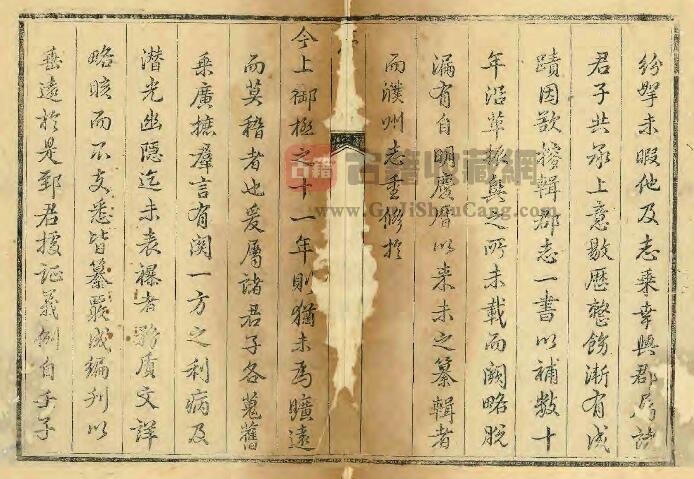 紛拏未暇他及志乘幸與郡局諸
君子共承上意敭歷整飭漸有成
蹟因欲搜輯郡志一書以補數十
年沿革損異之所未載而闕略脫
漏有自明慶曆以来未之纂輯者
而濮州志重修於
今上御極之十一年則猶未爲曠遠
而莫稽者也爰屬諸君子各蒐舊
乘廣摭羣言有関一方之利病及
潜光幽隱迄未表襮者務質文詳
略晐而不支悉皆纂𨤲成編刊以
垂遠於是郅君援証義例自子子
古籍收藏網
www.GuJiShouCang.com